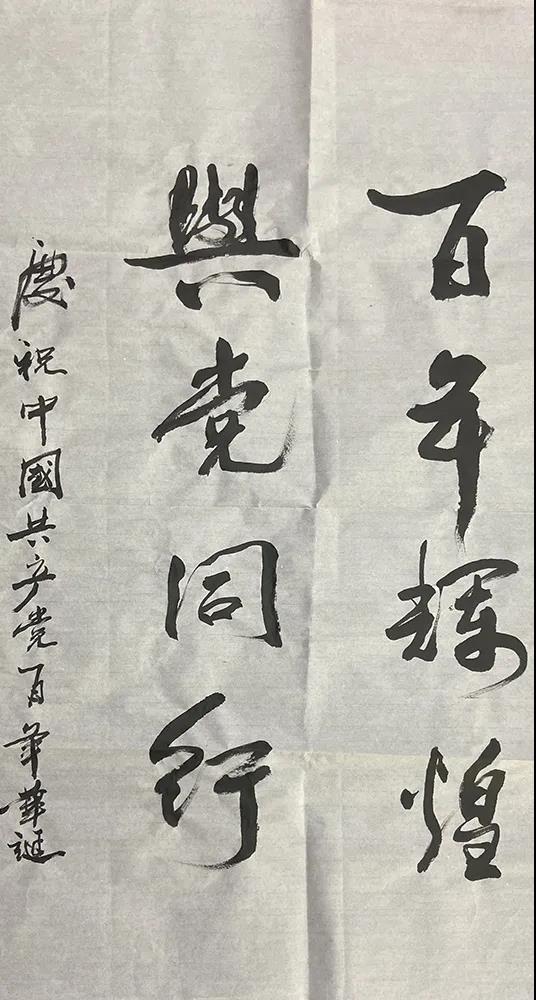 百年輝煌
與党同行
慶祝中國共产党百年華誕